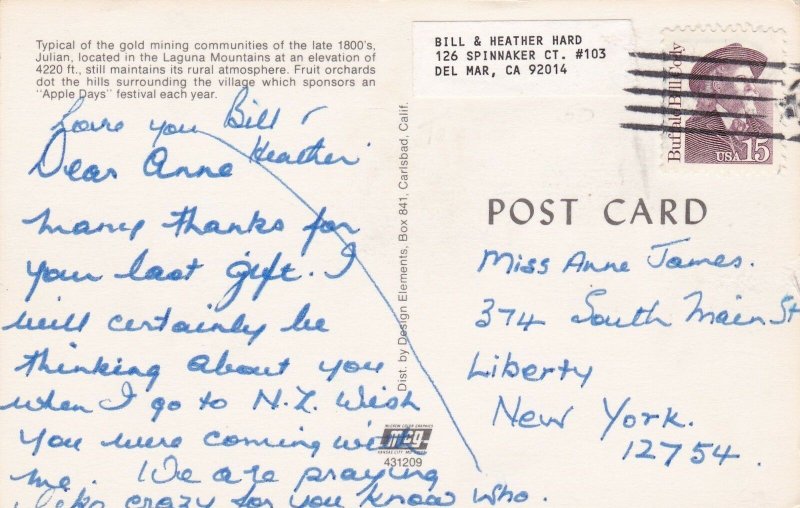 Typical of the gold mining communities of the late 1800's,
Julian, located in the Laguna Mountains at an elevation of
4220 ft., still maintains its rural atmosphere. Fruit orchards
dot the hills surrounding the village which sponsors an
"Apple Days" festival each year.
Love you Bill &
Heather
Dear Anne
many thanks for
your last gift. I
will certainly be
thinking about you
when I go to N.Z. Wish
you were coming with
me. We are praying
like crazy for you know who.
Dist. by Design Elements, Box 841, Carlsbad, Calif.
mcg
431209
BILL & HEATHER HARD
126 SPINNAKER CT. #103
DEL MAR, CA 92014
Buffalo Bill Cody
USA 15
POST CARD
Miss Anne James.
374 South Main St
Liberty
New York.
12754.